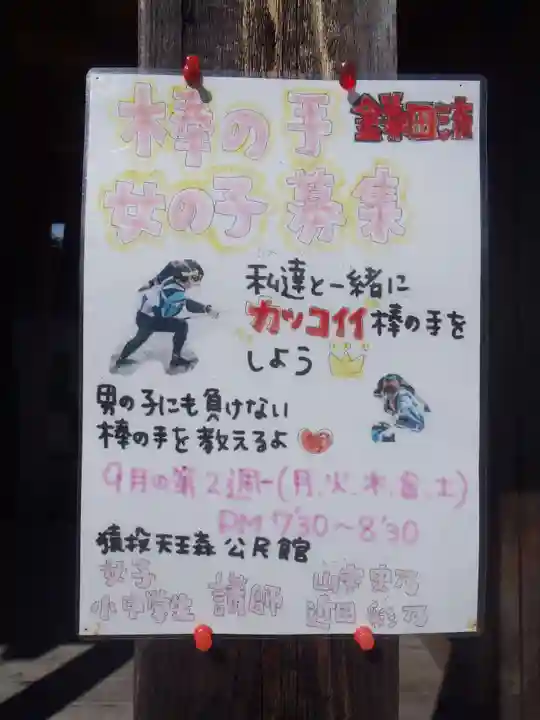 棒の手 鎌田流
女の子 募集
私達と一緒に
カッコイイ棒の手を
しよう
男の子にも負けない
棒の手を教えるよ
9月の第2週〜(月.火.木.金.土)
PM 7'30〜8'30
猿投天王森公民館
女子
小中学生
講師
近田